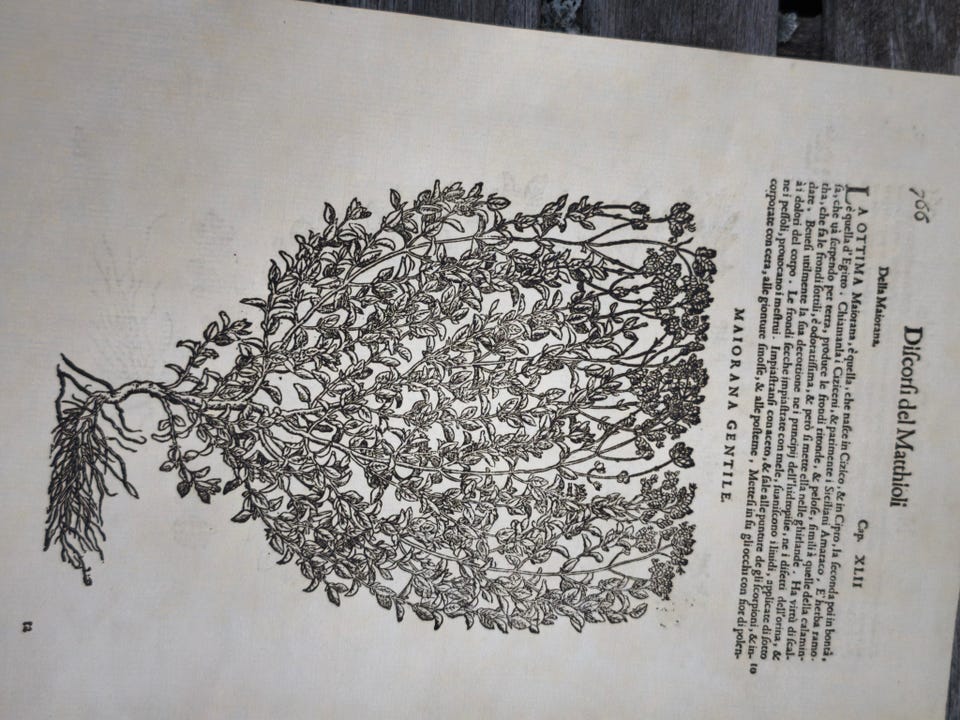 766
Diſcorſi del Matthioli
Della Maiorana. Cap. XLII
LA OTTIMA Maiorana, è quella, che naſce in Cizico, & in Cipro, la ſeconda poi in bontà,
è quella d'Egitto. Chiamanla i Ciziceni, & parimente i Siciliani Amaraco. E' herba ramo-
ſa, che và ſerpendo per terra, produce le frondi ritonde, & peloſe, ſimili à quelle della calamin-
tha, che fa le frondi ſottili, è odoratiſſima, & però ſi mette ella nelle ghirlande. Ha virtù di ſcal-
dare. Beueſi utilmente la ſua decottione ne i principij dell'hidropiſie, ne i difetti dell'orina, &
à i dolori del corpo. Le frondi ſecche impiaſtrate con mele, ſuaniſcono i liuidi, applicate di ſotto
ne i peſſoli, prouocano i meſtrui. Impiaſtranſi con aceto, & ſale alle punture de gli ſcorpioni, & in-
corporate con cera, alle gionture ſmoſſe, & alle poſteme. Metteſi in ſu gli occhi con fior di polen-
to
MAIORANA GENTILE.